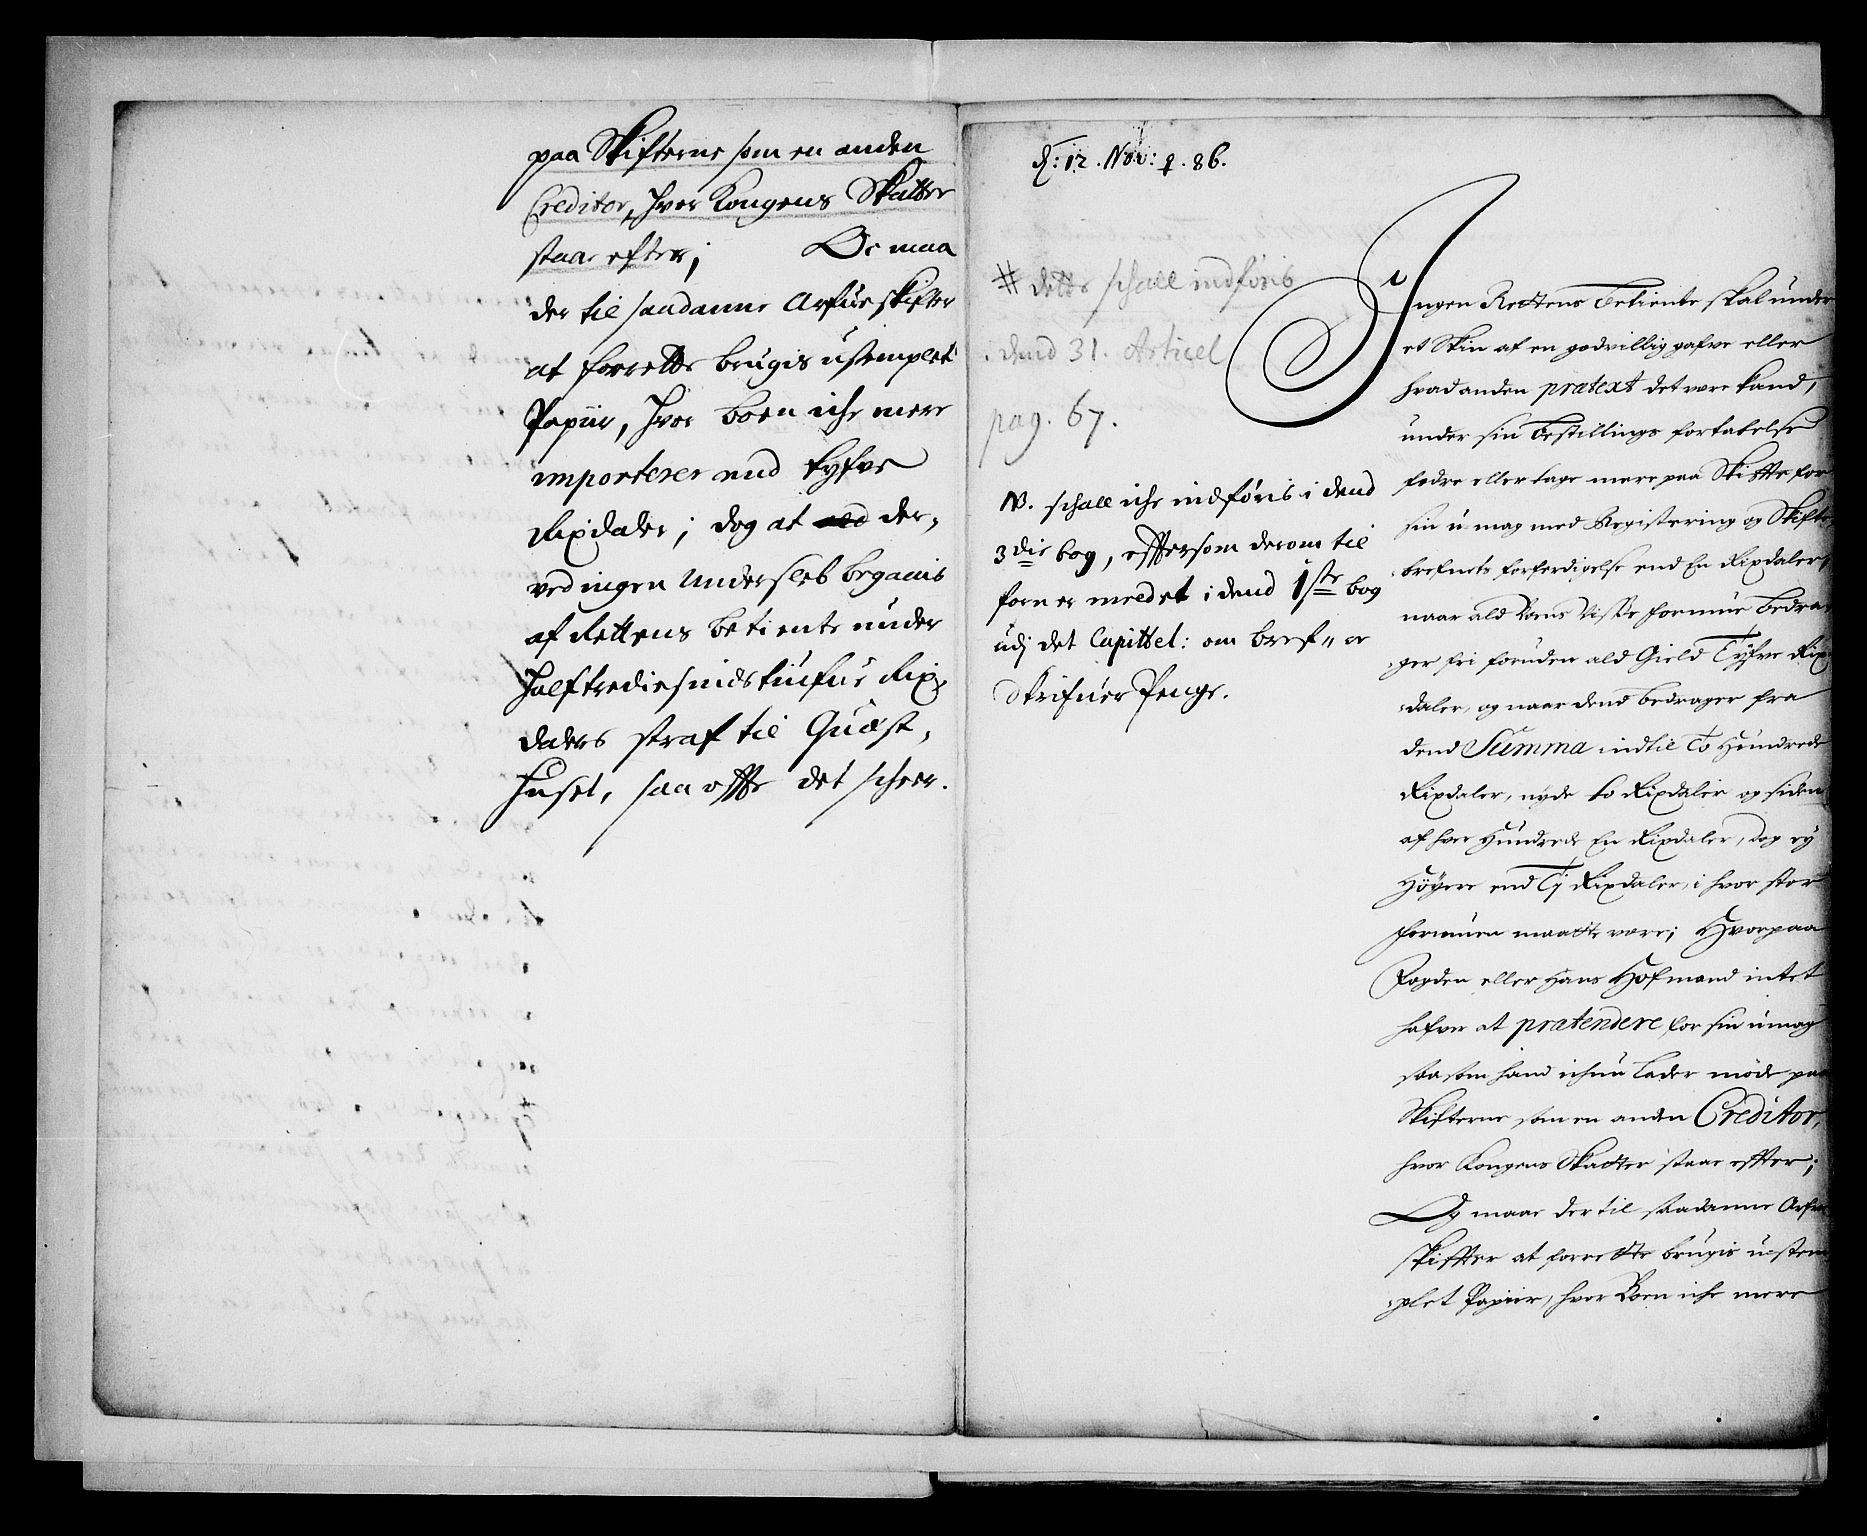 paa Skifterne som en anden
Creditor, hvor Kongens Skatter
staar efter; Oc maa
der til saadanne Arfue skifter
at forrette brugis ustemplet
Papiir, hvor boen iche mere
importerer end tyfve
Rixdaler; dog at ald der,
ved ingen Underslæb begaais
af Rettens betiente under
Halftrediesindstiufue Rix,
dalers straf til Quæst,
Huset, saa offte det scheer.
d: 12. Nov: 86.
# dette schall indføris
i dend 31. Articel
pag. 67.
NB. schall iche indføris i dend
3die bog, efftersom derom til
forn er meldet i dend 1ste bog
udj det Capittel: om bref- oc
Skrifuer Penge.
Ingen Rettens Betiente skal under
et Skin af en godvillig gafve eller
hvad anden prætext det være kand,
under sin Bestillings fortabelse
fodre eller tage mere paa Skiffte for
sin umag med Registering og Skifte
brefvets forferdigelse end En Rixdaler,
naar ald Boens Visse formue bedra
ger fri foruden ald Gield Tyfve Rix
daler, og naar dend bedrager fra
dend Summa indtil To Hundrede
Rixdaler, nyde to Rixdaler og siden
af hver Hundrede En Rixdaler, dog ey
Høyere end Ty Rixdaler, i hvor stor
formuen maatte være; Hvorpaa
Fogden eller Hans Hofmand intet
hafver at prætendere for sin umag
saasom hand ichun lader møde paa
Skifterne som en anden Creditor,
hvor Kongens Skatter staar effter;
Og maa der til saadanne Arfve
skiffter at forrette brugis ustem
plet Papiir, hvor Boen iche mere